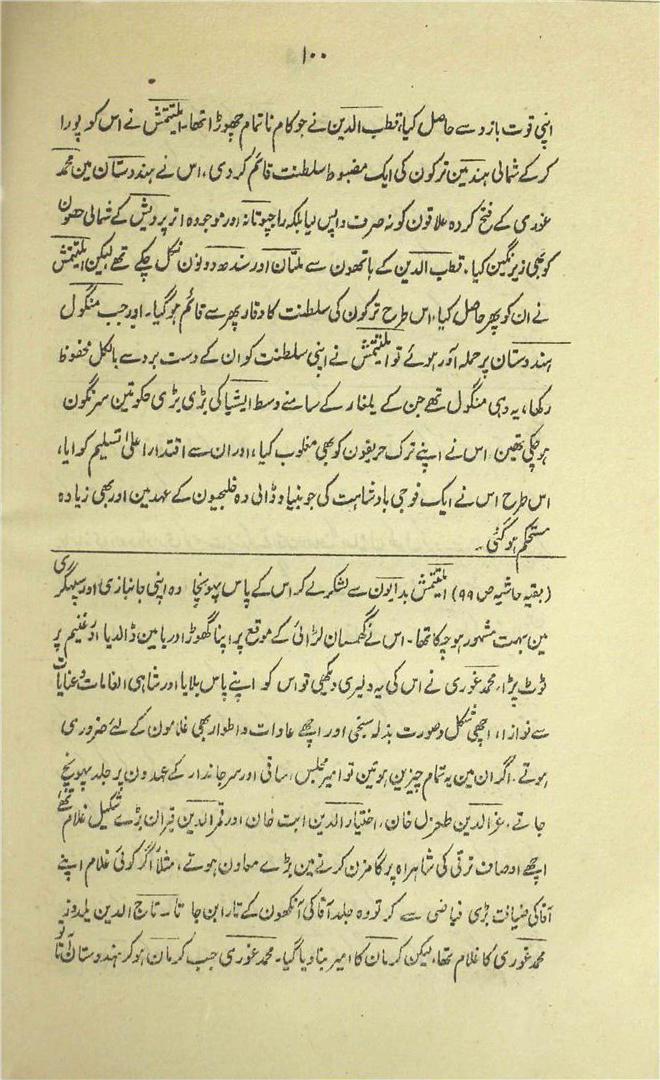 ۱۰۰
اپنی قوت بازو سے حاصل کیا، قطب الدین نے جو کام ناتمام چھوڑا تھا۔ ایلتتمش نے اس کو پورا
کر کے شمالی ہند مین ترکون کی ایک مضبوط سلطنت قائم کر دی، اس نے ہندوستان مین محمد
غوری کے فتح کردہ علاقون کو نہ صرف واپس لیا بلکہ راجپوتانہ اور موجودہ اتر پردیش کے شمالی حصون
کو بھی زیر نگین کیا۔ قطب الدین کے ہاتھون سے ملتان اور سندھ دونون نکل چکے تھے لیکن ایلتتمش
نے ان کو پھر حاصل کیا، اس طرح ترکون کی سلطنت کا وقار پھر سے قائم ہو گیا۔ اور جب منگول
ہندوستان پر حملہ آور ہوئے تو ایلتتمش نے اپنی سلطنت کو ان کے دست برد سے بالکل محفوظ
رکھا، یہ وہی منگول تھے جن کے یلغار کے سامنے وسط ایشیا کی بڑی بڑی حکومتین سرنگون
ہو چکی تھین، اس نے اپنے ترک حریفون کو بھی مغلوب کیا، اور ان سے اقتدار اعلیٰ تسلیم کرایا،
اس طرح اس نے ایک فوجی بادشاہت کی جو بنیاد ڈالی وہ خلجیون کے عہد مین اور بھی زیادہ
مستحکم ہو گئی۔
(بقیہ حاشیہ ص ۹۹) ایلتتمش بدایون سے لشکر لے کر اس کے پاس پہونچا وہ اپنی جانبازی اور سپہگری
مین بہت مشہور ہو چکا تھا۔ اس نے گھمسان لڑائی کے موقع پر اپنا گھوڑا دریا مین ڈالدیا اور غنیم پر
ٹوٹ پڑا، محمد غوری نے اس کی یہ دلیری دیکھی تو اس کو اپنے پاس بلایا اور شاہی انعامات و عنایات
سے نوازا، اچھی شکل و صورت بذلہ سنجی اور اچھے عادات و اطوار بھی غلامون کے لئے ضروری
ہوتے۔ اگر ان مین یہ تمام چیزین ہوتین تو امیر مجلس، ساقی اور سر جاندار کے عہدون پر جلد پہونچ
جاتے، عز الدین طغرل خان، اختیار الدین ایت خان اور قمر الدین قیران بڑے شکیل غلام تھے
اچھے اوصاف ترقی کی شاہراہ پر گامزن کرنے مین بڑے معاون ہوتے، مثلاً اگر کوئی غلام اپنے
آقا کی ضیافت بڑی فیاضی سے کرتا تو وہ جلد آقا کی آنکھون کے تارا بن جاتا۔ تاج الدین یلدوز
محمد غوری کا غلام تھا، لیکن کرمان کا امیر بنا دیا گیا۔ محمد غوری جب کرمان ہو کر ہندوستان آتا تو